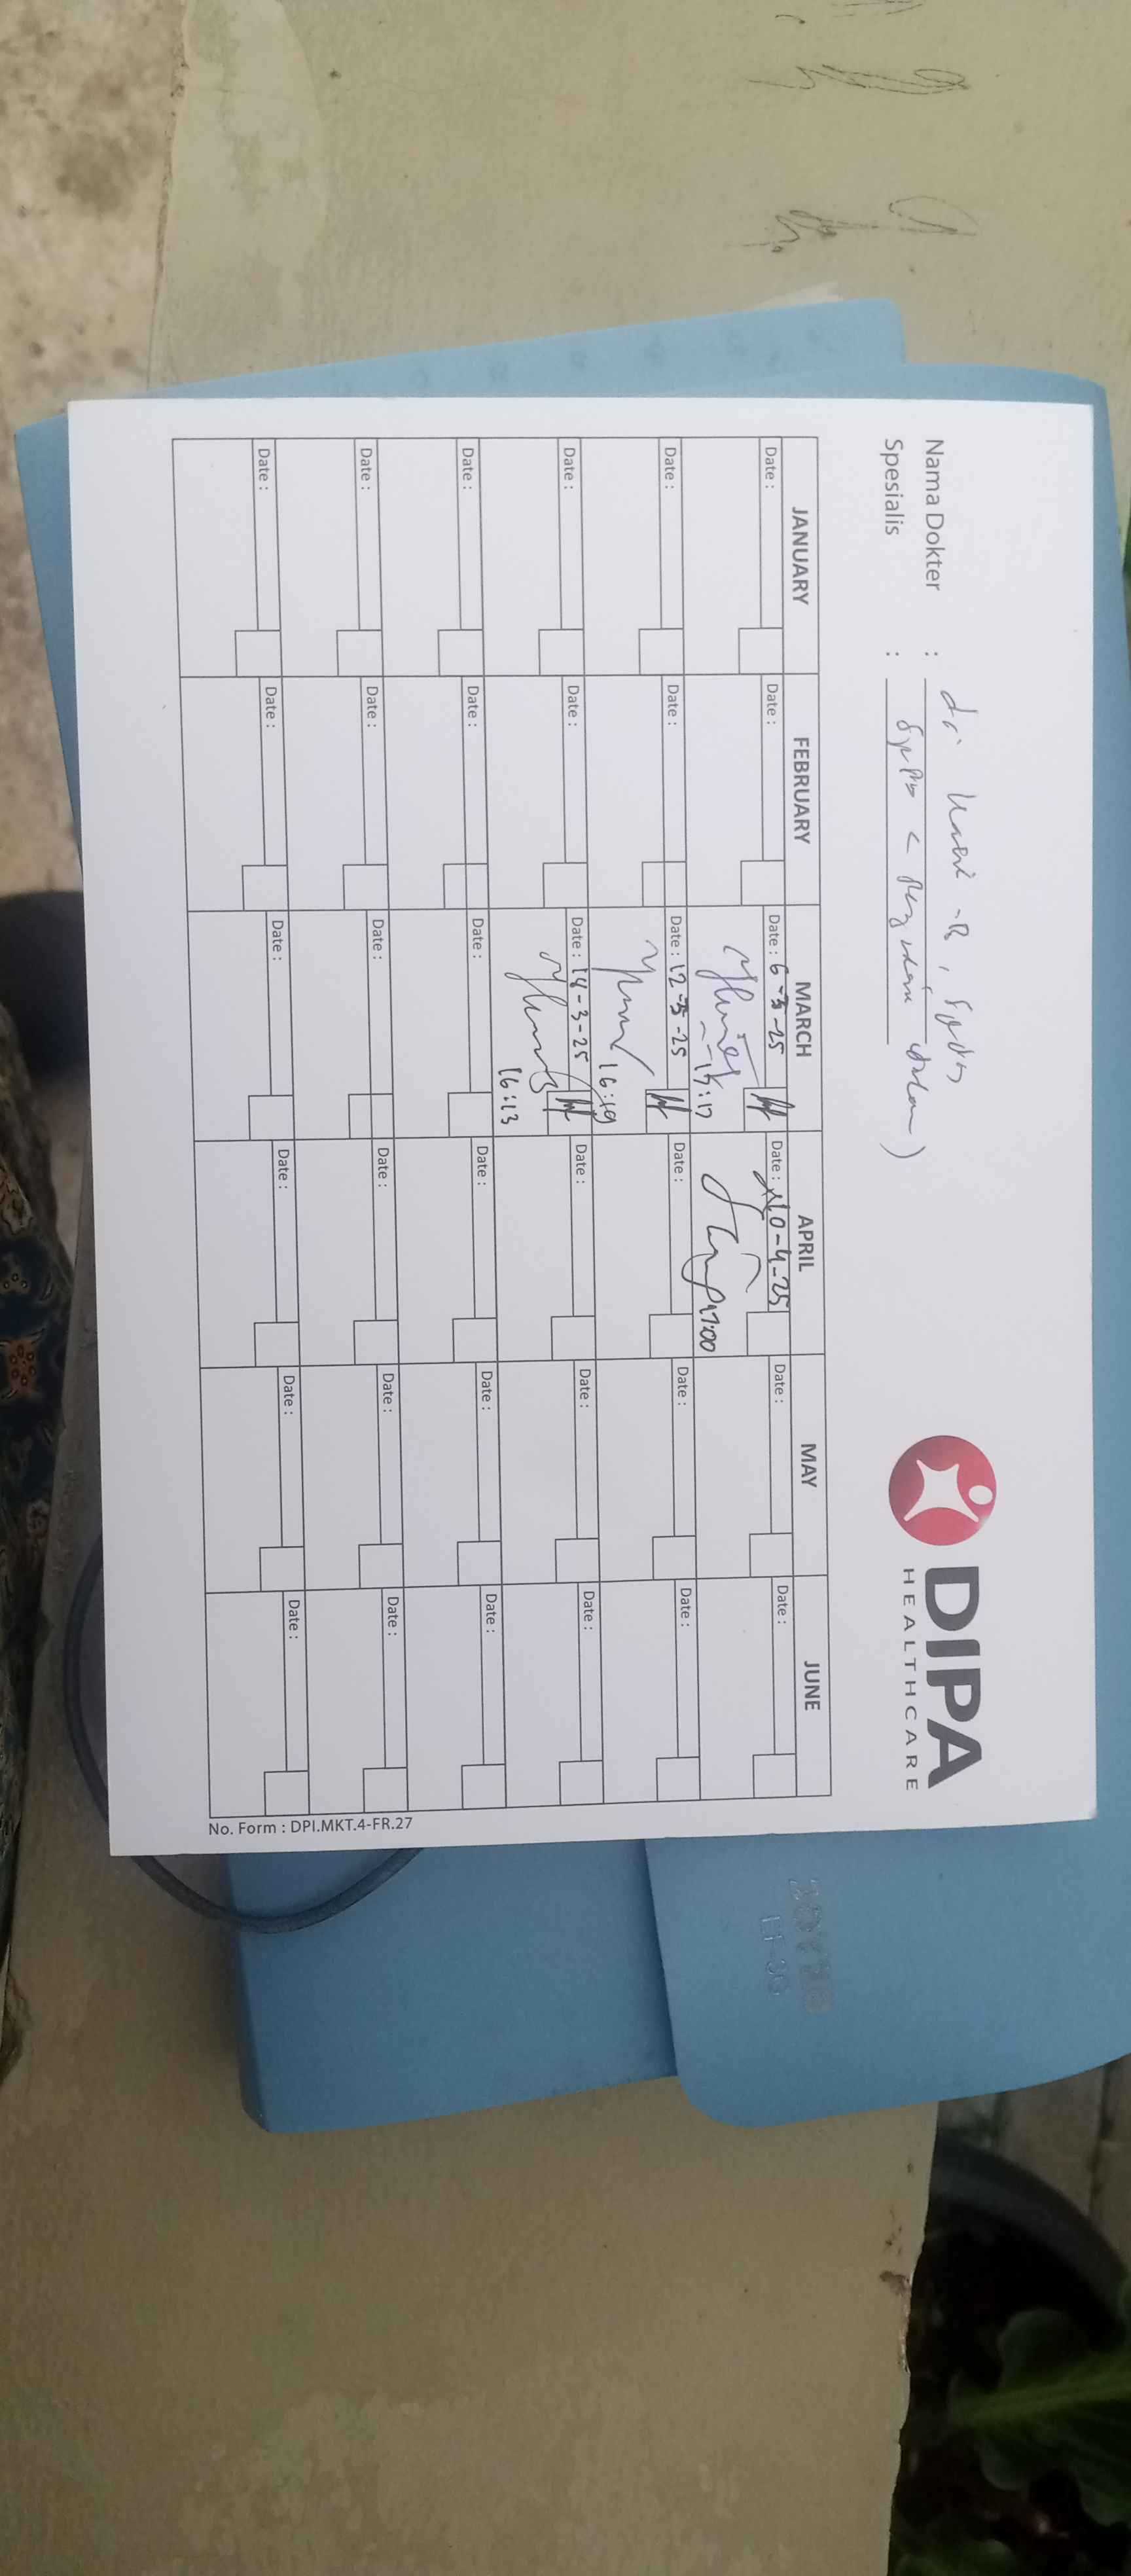 DIPA
HEALTHCARE
Nama Dokter :
Spesialis :
JANUARY FEBRUARY MARCH APRIL MAY JUNE
Date : Date : Date : 6-3-25 Date : 10-4-25 Date : Date :
17:17 17:00
Date : Date : Date : 12-3-25 Date : Date : Date :
16:19
Date : Date : Date : 18-3-25 Date : Date : Date :
16:13
Date : Date : Date : Date : Date : Date :
Date : Date : Date : Date : Date : Date :
Date : Date : Date : Date : Date : Date :
No. Form : DPI.MKT.4-FR.27